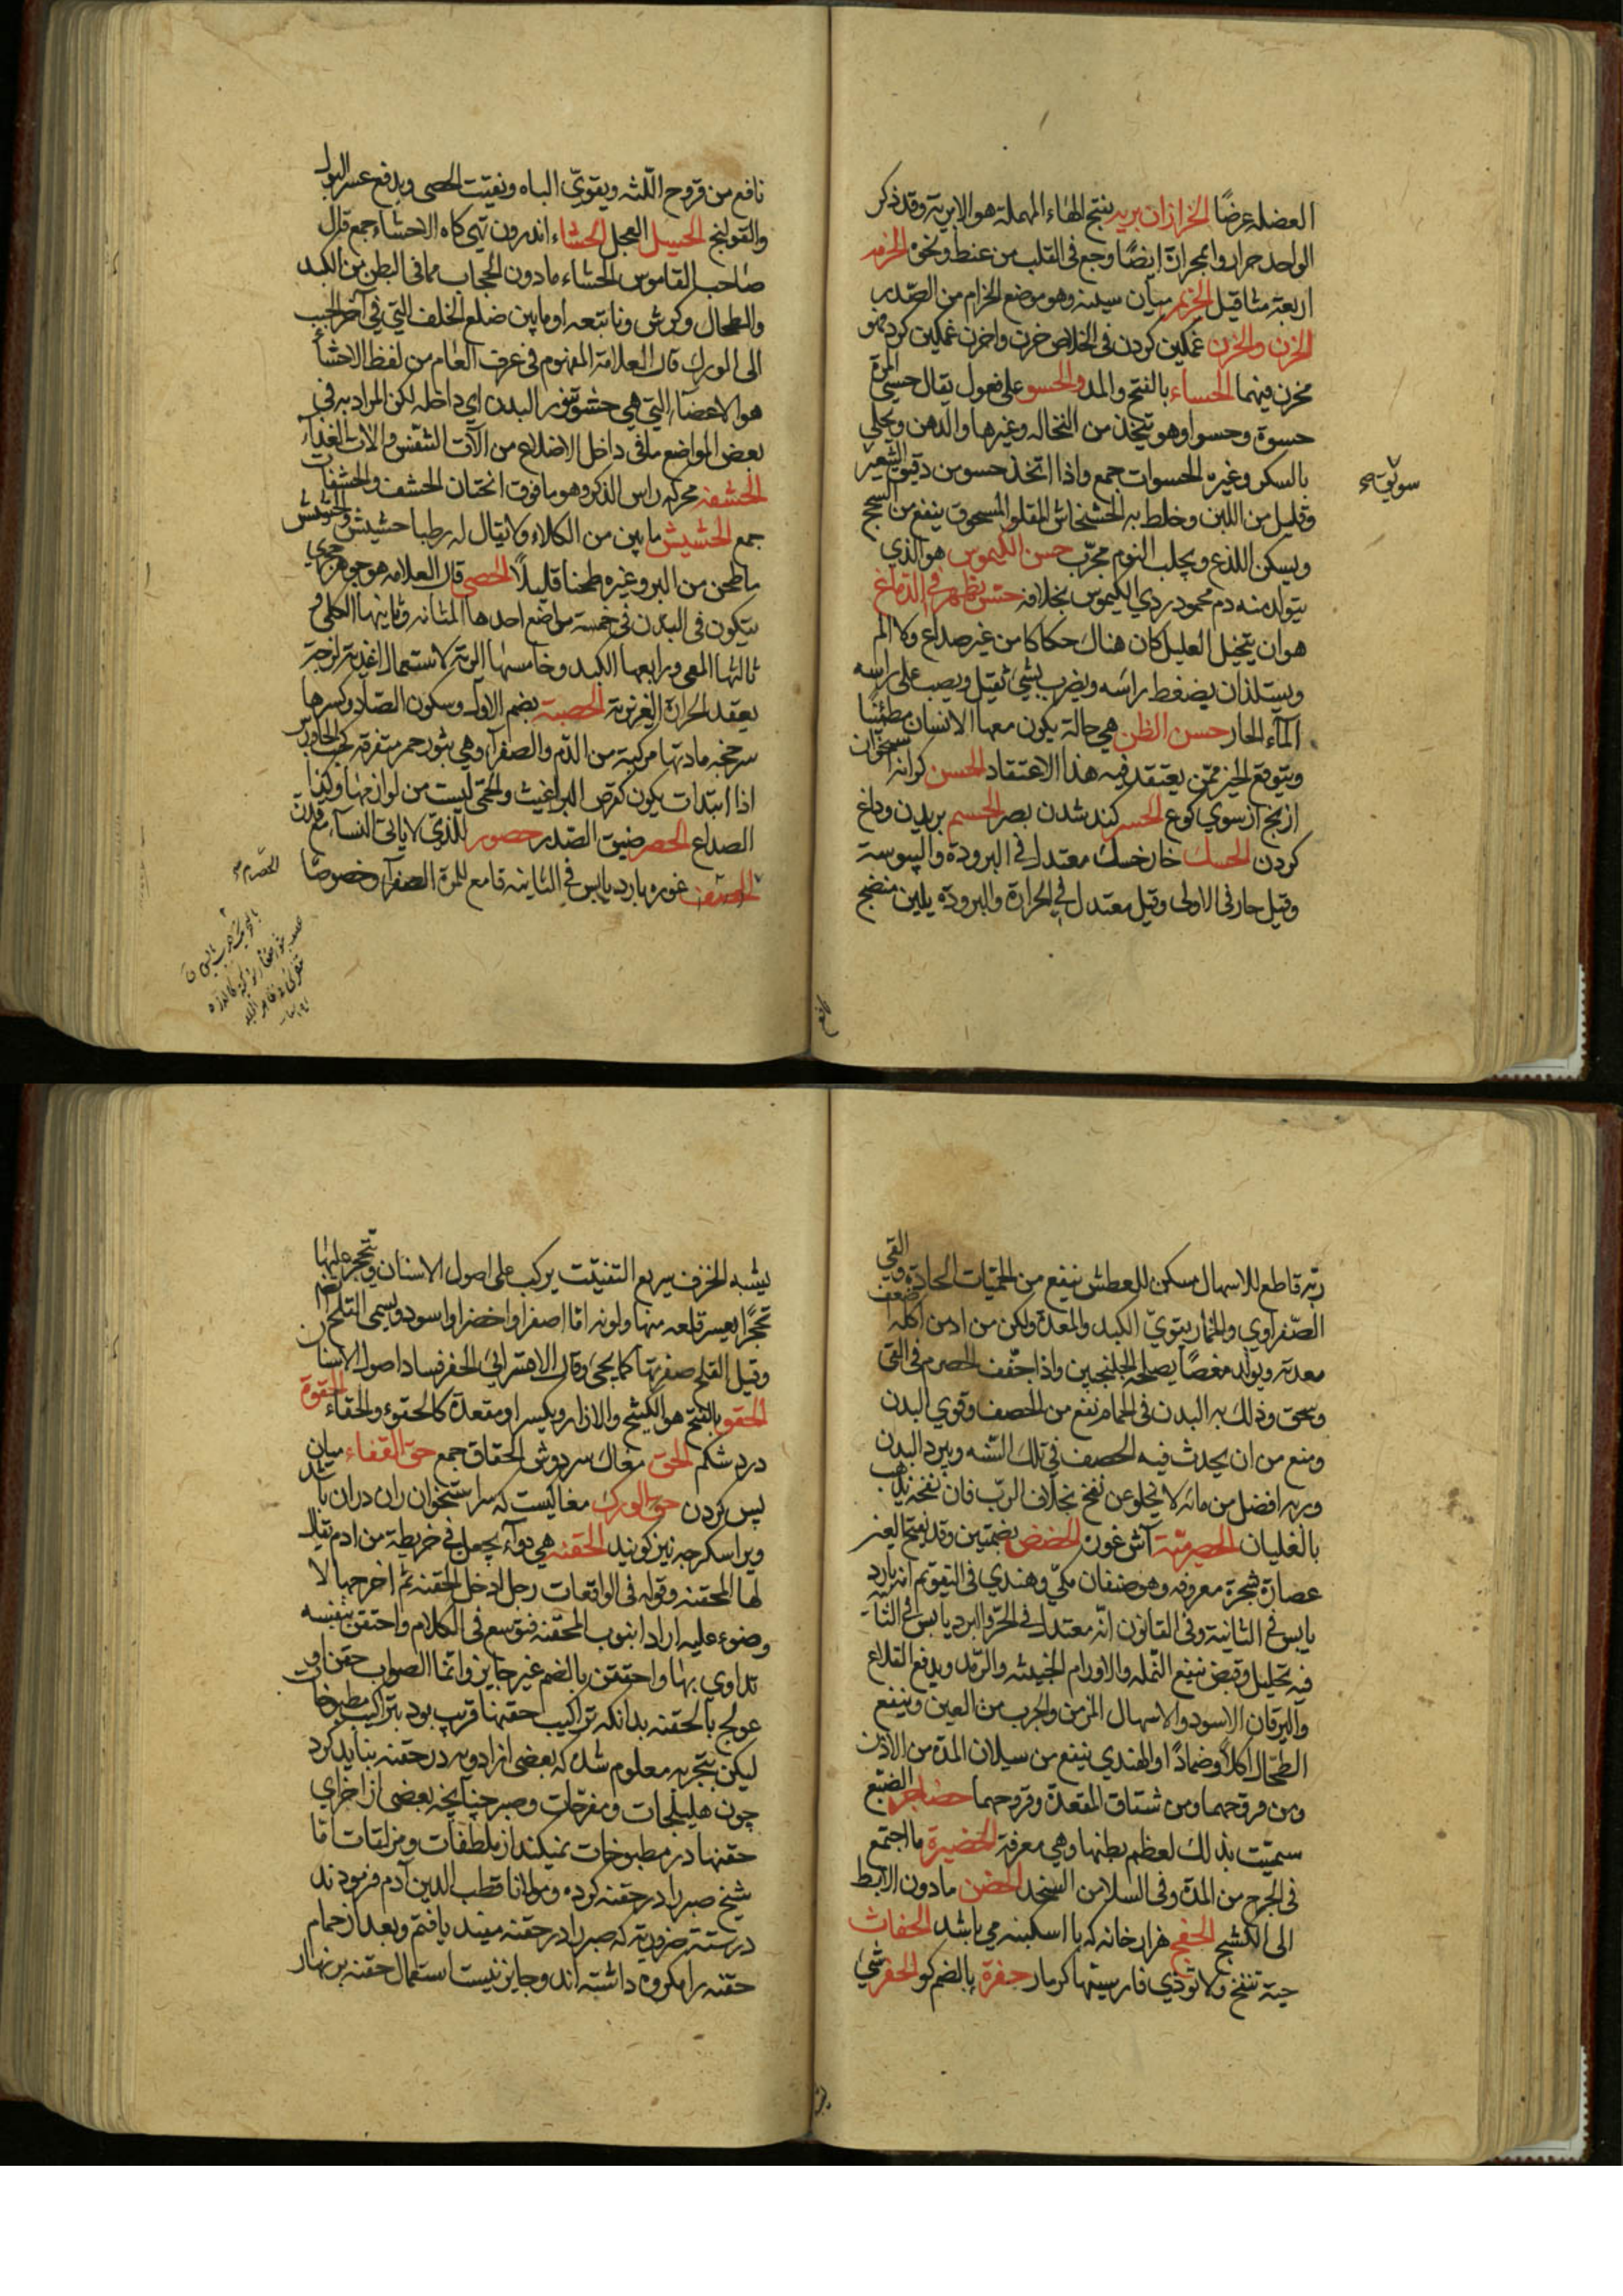 العضله عرضًا الخزازان بريه بفتح الهاء المهملة هو الابرية وقد ذكر
الواحد حرار والحرارة ايضًا وجع فى القلب من غيظ ونحوه الحزمه
اربعة مثاقيل الحزيم ميان سينه وهو موضع الحزام من الصّدر
الحزن والحزن غمگين كردن فى الخلاص حزن واحزن غمگين كرد فهو
محزن فيهما الحساء بالفتح والمد والحسو على فعول يقال حسى المرة
حسوة وحسوا وهو يتخذ من النخاله وغيرها والدهن ويحلى
بالسكر وغيره الحسوات جمع واذا اتخذ حسو من دقيق الشعير
سويق
وقليل من اللبن وخلط به الخشخاش المقلو المسحوق ينفع من السحج
ويسكن اللذع ويجلب النوم مجرّب حسن الكيموس هو الذي
يتولد منه دم محمود ردي الكيموس بخلافه حس يظهر فى الدماغ
هو ان يتخيل العليل كان هناك حكاكا من غير صداع ولا الم
ويستلذ ان يضغط راسه ويضرب بشئ ثقيل ويصب على راسه
الماء الحار حسن الظن هي حالة يكون معها الانسان مطمئنًا
ويتوقع الخير ممّن يعتقد فيه هذا الاعتقاد الحسن كرانه استخوان
ارنج ازسوي كوع الحسر كند شدن بصر الحسم بريدن وداغ
كردن الحسك خارخسك معتدل فى البرودة واليبوسة
وقيل حار فى الاولى وقيل معتدل فى الحرارة والبرودة يلين منضج
نافع
نافع من قروح اللّثه ويقوىّ الباه ويفتت الحصى ويدفع عسر البول
والقولنج الحسيل العجل الحشاء اندرون تهى كاه الاحشاء جمع قال
صاحب القاموس الحشاء مادون الحجاب مما فى البطن من الكبد
والطحال وكرش وما تبعه او ما بين ضلع الخلف التي في آخر الجنب
الى الورك قال العلامة المفهوم فى عرف العام من لفظ الاحشاء
هو الاعضاء التي هي حشو تنور البدن اي داخله لكن المراد به في
بعض المواضع ما فى داخل الاضلاع من آلات التنفس والات الغذاء
الحشفه محركه راس الذكر وهو ما فوق الختان الحشف والحشفات
جمع الحشيش ما يبس من الكلاء ولا يقال له رطبا حشيش والجشيش
ما طحن من البر وغيره طحنا قليلاً الحصى قال العلامه هو جوهر حجري
يتكون فى البدن في خمسة مواضع احدها المثانه وثانيها الكلى و
ثالثها المعى ورابعها الكبد وخامسها الرية لاستعمال اغذية لزجة
يعقد الحرارة الغريزية الحصبة بضم الاول وسكون الصاد وكسرها
سرخجه مادتها مركبة من الدّم والصفراء وهي بثور حمر متفرقة كحب الجاورس
اذا ابتدات يكون كقرص البراغيث والحمّى ليست من لوازمها وكذا
الصداع الحصر ضيق الصّدر حصور للذي لا ياتى النساء مع قدرة
الحصرم غوره بارد يابس في الثانيه قامع للمرة الصفراء وخصوصًا
الحصرم
ربّه قاطع للاسهال مسكن للعطش ينفع من الحميّات الحادة والقي
الصّفراوي والخمار يقويّ الكبد والمعدة ولكن من ادمن اكله اضعف
معدته ويولد مغصًا يصلحه الجلنجبين واذا جفّف الحصرم في القئ
وسحق وذلك به البدن فى الحمام نفع من الحصف وقوي البدن
ومنع من ان يحدث فيه الحصف في تلك السّنه ويبرد البدن
وربه افضل من مائه لا يخلو عن نفخ بخلاف الربّ فان نفخه يذهب
بالغليان الحصرميّة آش غوره الحضض بضمتين وقد يفتح العين
عصارة شجرة معروفه وهو صنفان مكّي وهندي فى التقويم انه بارد
يابس في الثانية وفى القانون انّه معتدل فى الحرّ والبرد يابس فى الثانية
فيه تحليل وقبض ينفع النّمله والاورام الخبيثه والرّمد ويدفع القلاع
واليرقان الاسود والاسهال المزمن والجرب من العين وينفع
الطّحال اكلاً وضمادًا والهندي ينفع من سيلان المدّة من الاذن
ومن قروحها ومن شقاق المقعدة وقروحها حضاجر الضّبع
سمّيت بذلك لعظم بطنها وهي معرفة الحضيرة ما اجتمع
فى الجرح من المدّة وفى السلا من السخد الحضن مادون الابط
الى الكشح الحفج هزار خانه كه با اسكبنه مي باشد الحفاث
حية تنفخ ولا تؤذي فارسيتها كرمار حفرة بالضم كو الحفر شئ
يشبه الخزف سريع التفتّت يركب على اصول الاسنان ويتحجر عليها
تحجّرًا يعسر قلعه منها ولونه امّا اصفر او اخضر او اسود ويسمى القلح
وقيل القلح صفرتها كما يجئ وقال الاهتراني الحفر فساد اصول الاسنان
الحقو بالفتح هو الكشح والازار ويكسر او مقعدة كالحقوء والحقاء الحقوة
درد شكم الحق مغاك سر دوش الحقاق جمع حق القفاء ميان
پس كردن حق الورك مغاكيست كه سر استخوان ران دران باشد
ويرا سكرجه نيز كويند الحقنه هي دواء يجعل في خريطة من ادم يقال
لها المحقنه وقوله فى الواقعات رجل ادخل الحقنه ثم اخرجها لا
وضوء عليه اراد انبوب المحقنه فتوسع فى الكلام واحتقن بنفسه
تداوي بها واحتقن بالضم غير جايز وانّما الصواب حقن او
عولج بالحقنه بدانكه تراكيب حقنها قريب بود بتراكيب مطبوخات
ليكن بتجربه معلوم شد كه بعضى از ادويه در حقنه نبايد كرد
چون هليلجات ومفرحات وصبر چنانچه بعضى از اجزاي
حقنها در مطبوخات نميكنند از ملطفات ومزلقات امّا
شيخ صبر را در حقنه كرده ومولانا قطب الدين آدم فرمودند
حقنه را مكروه داشته اند وجايز نيست استعمال حقنه بر نهار